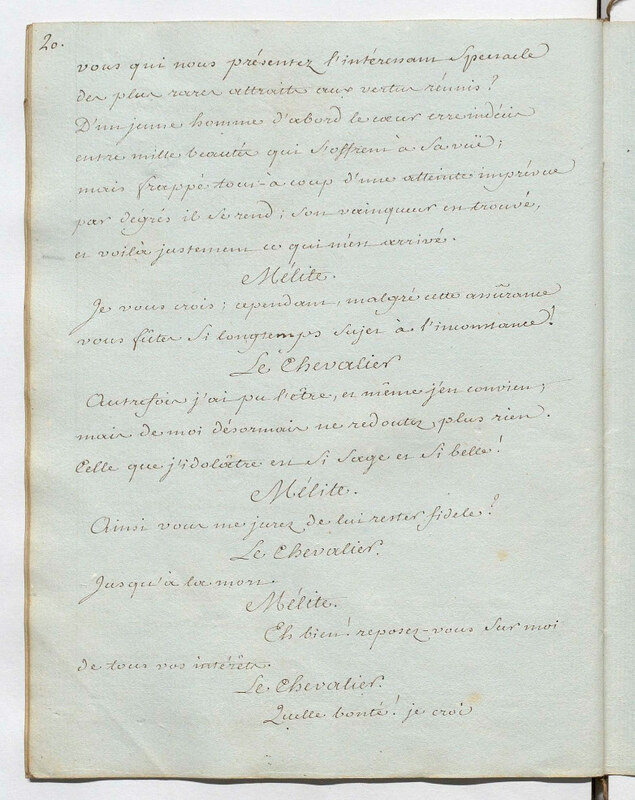 20.
vous qui nous présentez l'intéressant Spectacle
des plus rares attraits aux vertus réunis?
D'un jeune homme d'abord le cœur erre indécis
entre mille beautés qui s'offrent à Sa vuë;
mais frappé tout-à coup d'une atteinte imprévue
par dégrés il se rend; son vainqueur est trouvé,
et voilà justement ce qui m'est arrivé.
Mélite.
Je vous crois; cependant, malgré cette assûrance
vous fûtes si longtemps sujet à l'inconstance!
Le Chevalier
Autrefois j'ai pu l'être, et même j'en convien;
mais de moi désormais ne redoutez plus rien.
Celle que j'idolâtre est si sage et si belle!
Mélite.
Ainsi vous me jurez de lui rester fidele?
Le Chevalier.
Jusqu'à la mort.
Mélite.
Eh bien! reposez-vous sur moi
de tous vos intérêts.
Le Chevalier.
Quelle bonté! je croi